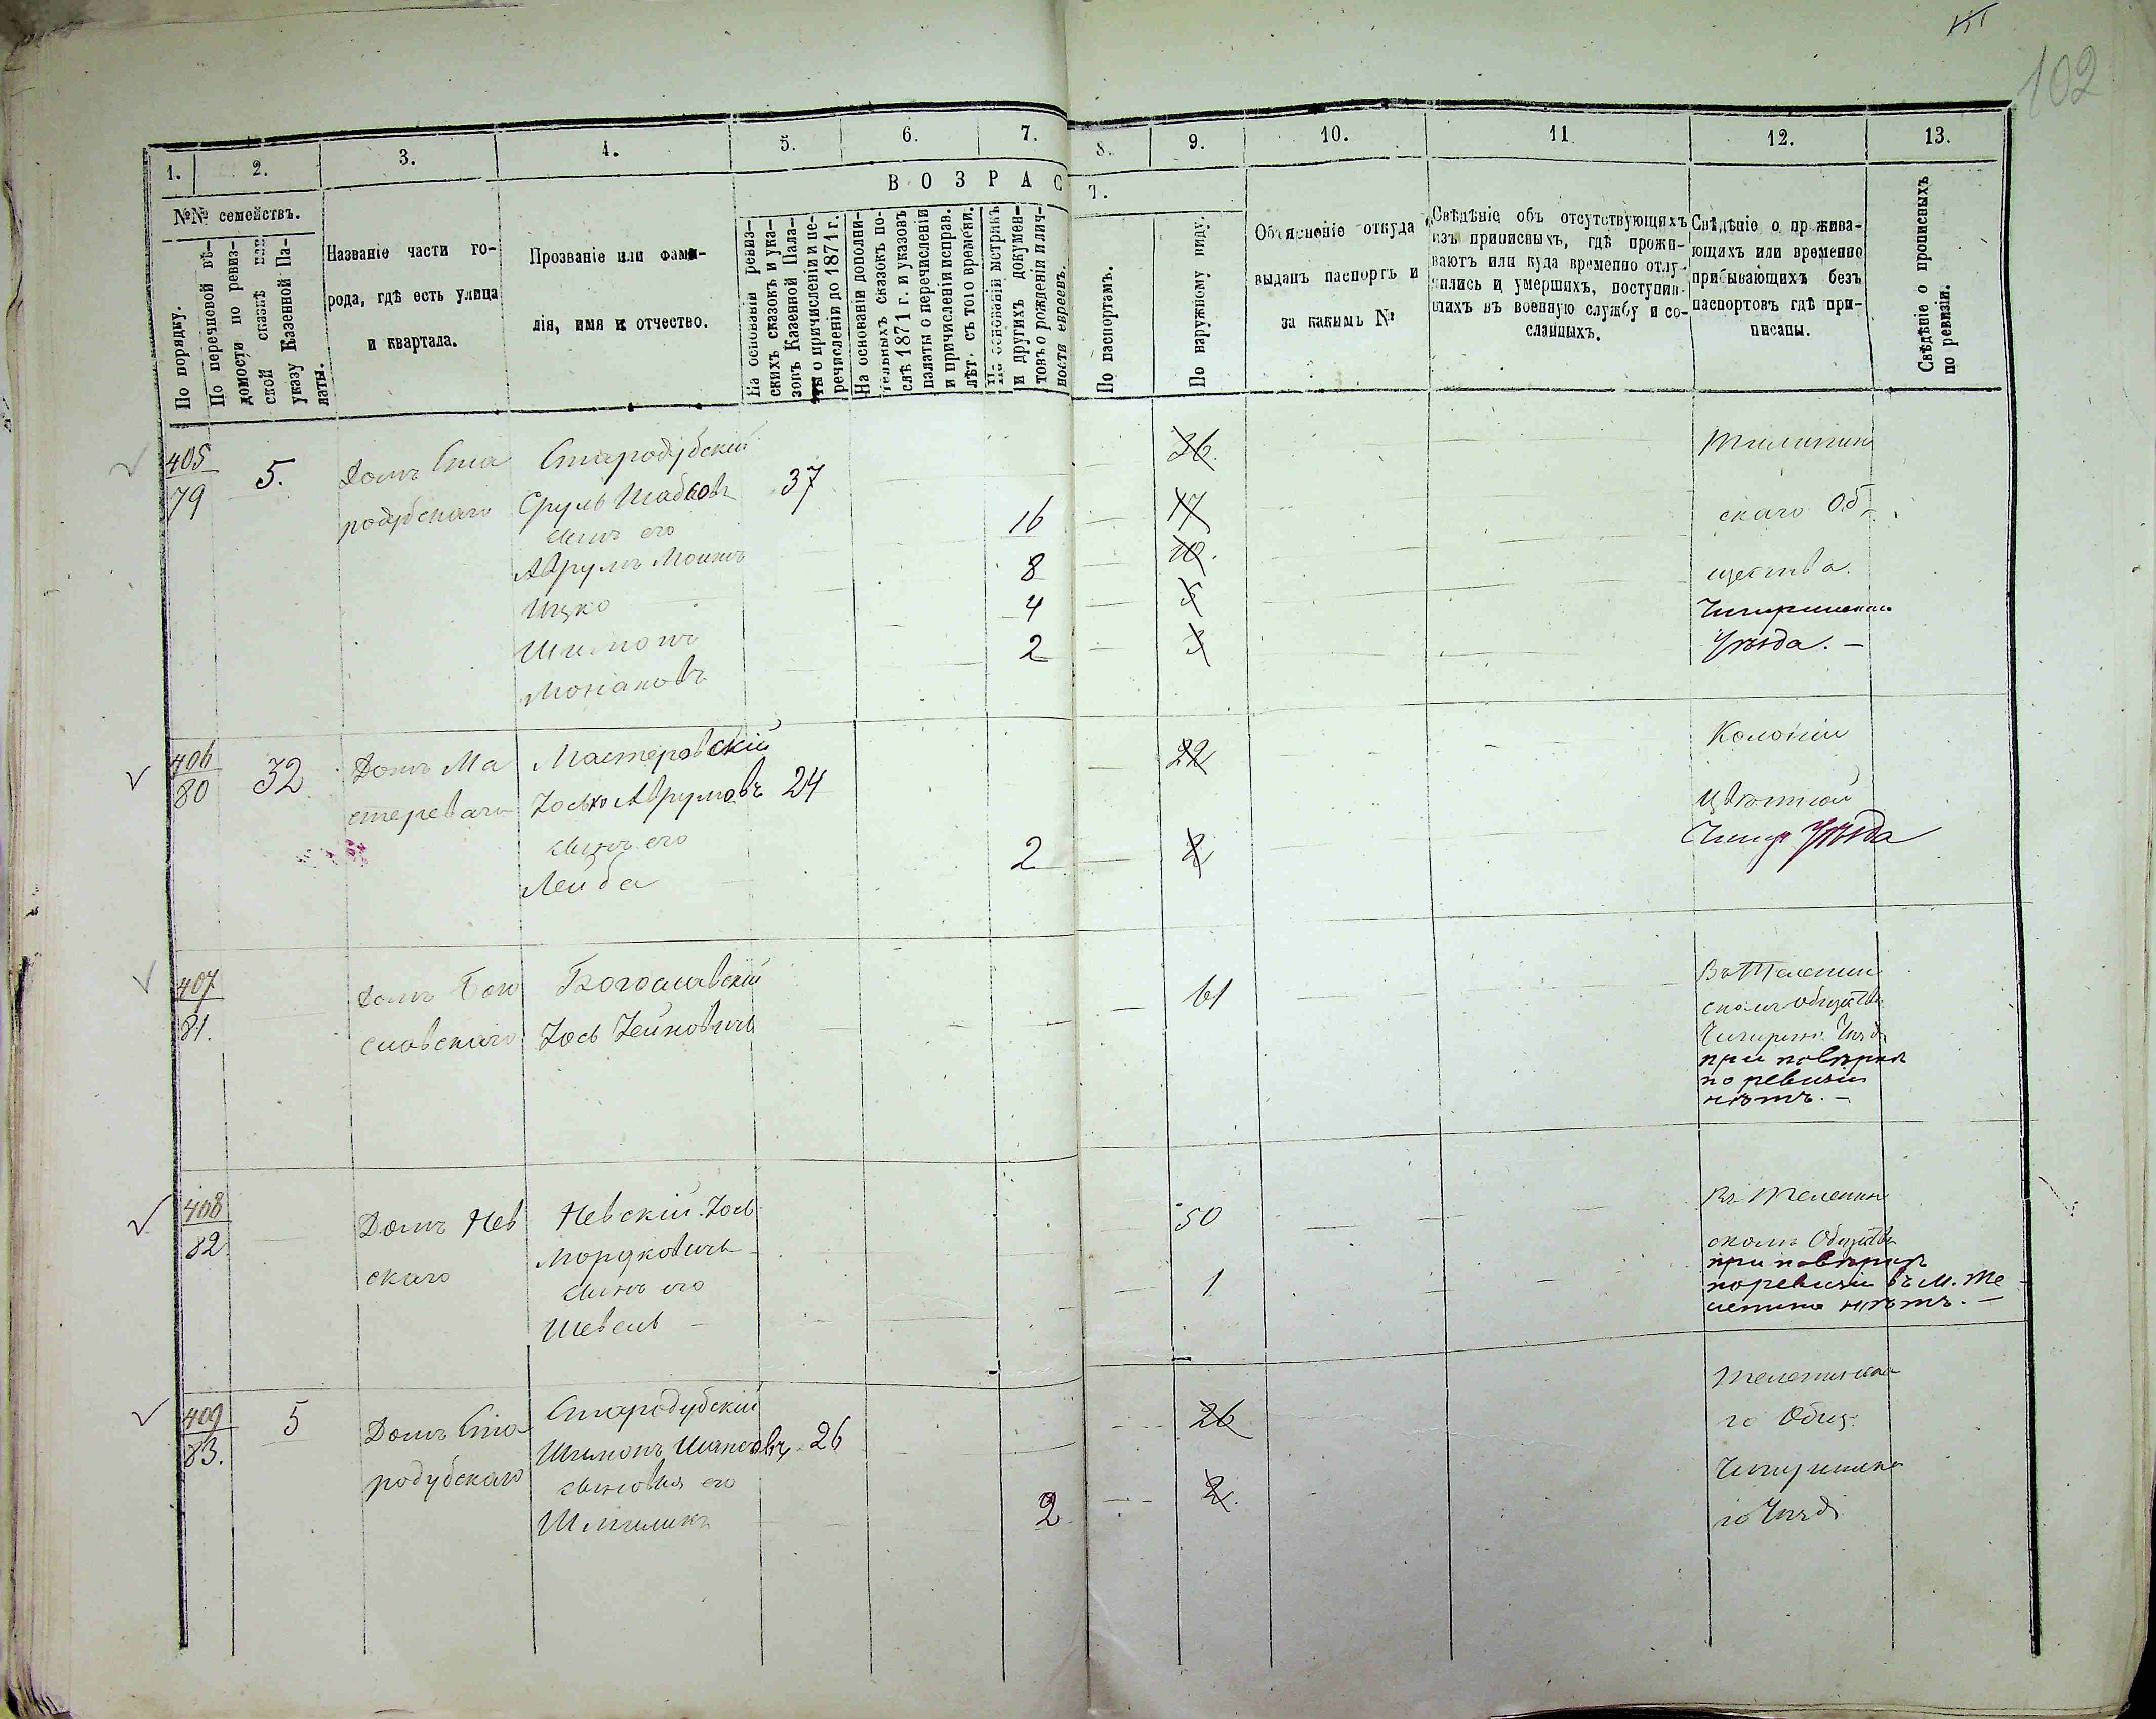 102
1. 2. 3. 4. 5. 6. 7. 8. 9. 10. 11. 12. 13.
№№ семействъ.
По порядку.
По перечневой вѣ-
домости по ревиз-
ской сказкѣ или
указу Казенной Па-
латы.
Названіе части го-
рода, гдѣ есть улица
и квартала.
Прозваніе или фами-
лія, имя и отчество.
ВОЗРАС
7.
На основаніи ревиз-
скихъ сказокъ и ука-
зовъ Казенной Пала-
ты о причисленіи и пе-
речисленіи до 1871 г.
На основаніи дополни-
тельныхъ сказокъ по-
слѣ 1871 г. и указовъ
палаты о перечисленіи
и причисленіи исправ.
лѣт. съ того времени.
На основаніи метрикъ
и другихъ докумен-
товъ о рожденіи и лич-
ности евреевъ.
По паспортамъ.
По наружному виду.
Объясненіе откуда
выданъ паспортъ и
за какимъ №
Свѣдѣніе объ отсутствующихъ
изъ приписныхъ, гдѣ прожи-
ваютъ или куда временно отлу-
чились и умершихъ, поступив-
шихъ въ военную службу и со-
сланныхъ.
Свѣдѣніе о прожива-
ющихъ или временно
прибывающихъ безъ
паспортовъ гдѣ при-
писаны.
Свѣдѣніе о прописныхъ
по ревизіи.
405
79
5.
Домъ Ста
родубскаго
Стародубскій
Сруль
37
36.
сынъ его
16
17
Аврумъ
8
10.
Ицко
4
5
Шимонъ
2
3
скаго Об-
щества.
Уѣзда. -
406
80
32
Домъ Ма
стереваго
Мастеровскій
Іосько Аврумовъ
24
22
сынъ его
Лейба
2
2
Колоніи
Цвѣтной
Чигир Уѣзда
407
81.
Домъ Бого
словскаго
Богословскій
Іось
61
Въ Телепин
скомъ обществѣ
при повѣркѣ
по ревизіи
нѣтъ. -
408
82.
Домъ Нев
скаго
Невскій Іось
Мордковичъ
50
сынъ его
Шевель
1
Въ Телепин
скомъ Обществѣ
при повѣркѣ
по ревизіи въ м. Те
лепино нѣтъ. -
409
83.
5
Домъ Ста
родубскаго
Стародубскій
Шимонъ
26
26
сыновья его
Шмиликъ
2
2.
Телепинска
го Общ.
го Уѣзд.